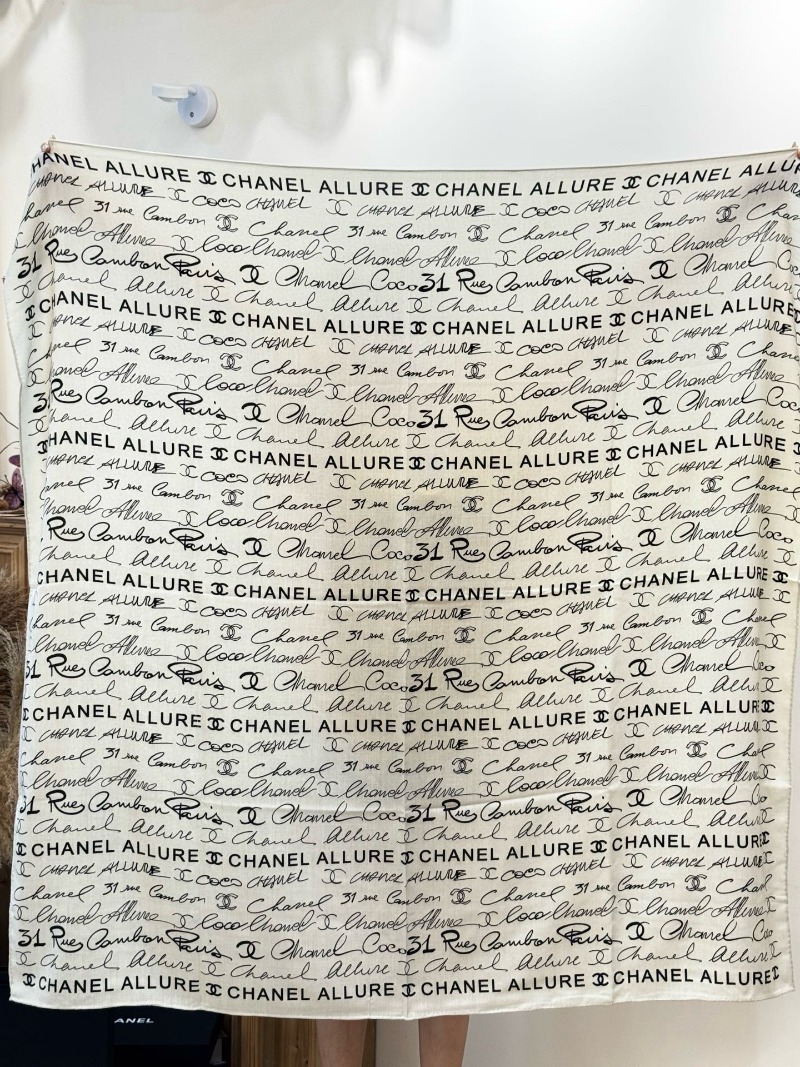 HANEL ALLURE CHANEL ALLURE CHANEL ALLURE CHANEL ALLUR
CHANEL ALLURE COCO CHANEL CHANEL ALLURE COCO CHANEL CHANEL ALLURE
Chanel 31 rue Cambon Chanel 31 rue Cambon Chanel 31 rue Cambon Chanel
Chanel Allure Coco Chanel Chanel Allure Coco Chanel Chanel Allure
31 Rue Cambon Paris Chanel Coco 31 Rue Cambon Paris Chanel Coco
Chanel Allure Chanel Allure Chanel Allure Chanel Allure
CHANEL ALLURE CHANEL ALLURE CHANEL ALLURE CHANEL ALLURE
CHANEL ALLURE COCO CHANEL CHANEL ALLURE COCO CHANEL CHANEL ALLURE
Chanel 31 rue Cambon Chanel 31 rue Cambon Chanel 31 rue Cambon Chanel
Chanel Allure Coco Chanel Chanel Allure Coco Chanel Chanel Allure
31 Rue Cambon Paris Chanel Coco 31 Rue Cambon Paris Chanel Coco
Chanel Allure Chanel Allure Chanel Allure Chanel Allure
HANEL ALLURE CHANEL ALLURE CHANEL ALLURE CHANEL ALLURE
CHANEL ALLURE COCO CHANEL CHANEL ALLURE COCO CHANEL CHANEL ALLURE
Chanel 31 rue Cambon Chanel 31 rue Cambon Chanel 31 rue Cambon Chanel
Chanel Allure Coco Chanel Chanel Allure Coco Chanel Chanel Allure
Rue Cambon Paris Chanel Coco 31 Rue Cambon Paris Chanel Coco
Chanel Allure Chanel Allure Chanel Allure Chanel Allure
CHANEL ALLURE CHANEL ALLURE CHANEL ALLURE CHANEL ALLURE
CHANEL ALLURE COCO CHANEL CHANEL ALLURE COCO CHANEL CHANEL ALLURE
Chanel 31 rue Cambon Chanel 31 rue Cambon Chanel 31 rue Cambon Chanel
Chanel Allure Coco Chanel Chanel Allure Coco Chanel Chanel Allure
31 Rue Cambon Paris Chanel Coco 31 Rue Cambon Paris Chanel
Chanel Allure Chanel Allure Chanel Allure Chanel Allure
CHANEL ALLURE CHANEL ALLURE CHANEL ALLURE CHANEL ALLUR
CHANEL ALLURE COCO CHANEL CHANEL ALLURE COCO CHANEL CHANEL ALLURE
Chanel 31 rue Cambon Chanel 31 rue Cambon Chanel 31 rue Cambon
Chanel Allure Coco Chanel Chanel Allure Coco Chanel Chanel Allure
31 Rue Cambon Paris Chanel Coco 31 Rue Cambon Paris Chanel
Chanel Allure Chanel Allure Chanel Allure Chanel Allure
CHANEL ALLURE CHANEL ALLURE CHANEL ALLURE CHANEL ALLUR
CHANEL ALLURE COCO CHANEL CHANEL ALLURE COCO CHANEL CHANEL ALLURE
Chanel 31 rue Cambon Chanel 31 rue Cambon Chanel 31 rue Cambon
Chanel Allure Coco Chanel Chanel Allure Coco Chanel Chanel Allure
31 Rue Cambon Paris Chanel Coco 31 Rue Cambon Paris Chanel
Chanel Allure Chanel Allure Chanel Allure Chanel Allure
CHANEL ALLURE CHANEL ALLURE CHANEL ALLURE CHANEL ALLURE
ANEL